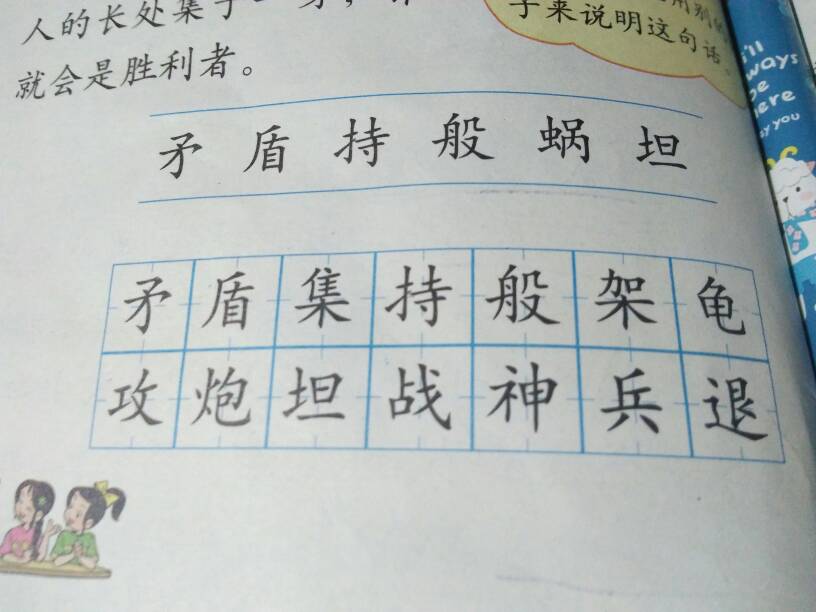 人的长处集于一身，
用别的
子来说明这句话。
就会是胜利者。
矛 盾 持 般 蜗 坦
矛 盾 集 持 般 架 龟
攻 炮 坦 战 神 兵 退
I'll
always
be
here
by you